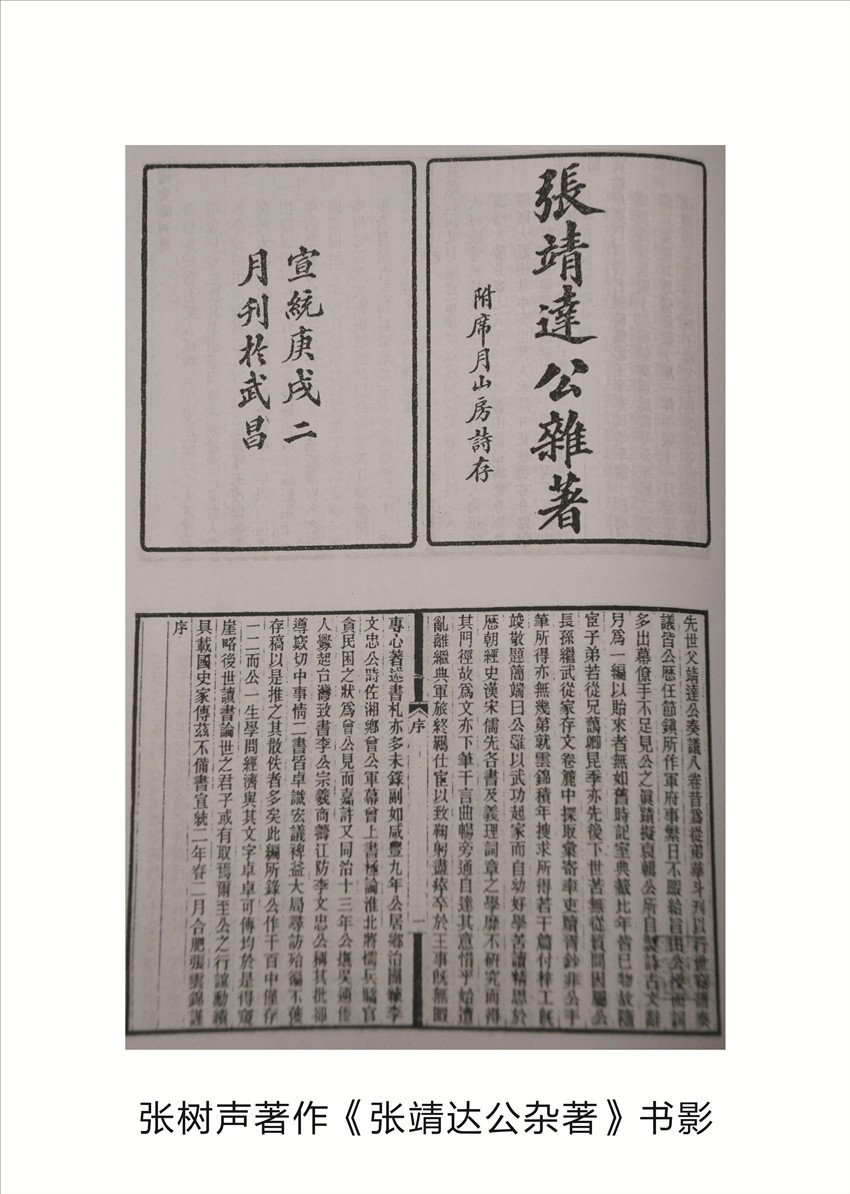 張靖達公雜著
附席月山房詩存
宣統庚戌二
月刊於武昌
先世父靖達公奏議八卷昔為從弟華斗刊以行世竊謂奏
議皆公歷任節鎮所作軍府事繁日不暇給
多出幕僚手不足見公之真蹟擬裒輯公所自製詩古文辭
月為一編以貽來者無如舊時記室典籤比年皆已物故隨
宦子弟若從兄藹卿昆季亦先後下世苦無從質問因屬公
長孫繼武從家存文卷簏中探取彙寄率吏牘胥鈔非公手
筆所得亦無幾第就雲錦積年搜求所得若干篇付梓工既
竣敬題簡端曰公雖以武功起家而自幼好學苦讀精思於
歷朝經史漢宋儒先各書及義理詞章之學靡不研究而得
其門徑故為文亦下筆千言曲暢旁通自達其意惜乎始遭
亂離繼典軍旅終羈仕宦以致鞠躬盡瘁卒於王事既無暇
序
一
專心著述書札亦多未錄副如咸豐九年公居鄉治團練李
文忠公時佐湘鄉曾公軍幕曾上書極論淮北將懦兵驕官
貪民困之狀為曾公見而嘉許又同治十三年公撫吳適倭
人釁起台灣致書李公宗羲商籌江防李文忠公稱其批卻
導窾切中事情二書皆卓識宏議裨益大局尋訪殆徧不獲
存稿以是推之其散佚者多矣此編所錄公作千百中僅存
一二而公一生學問經濟與其文字卓卓可傳均於是得窺
崖略後世讀書論世之君子或有取焉爾至公之行誼勳績
具載國史家傳茲不備書宣統二年春二月合肥張雲錦謹
序
张树声著作《张靖达公杂著》书影